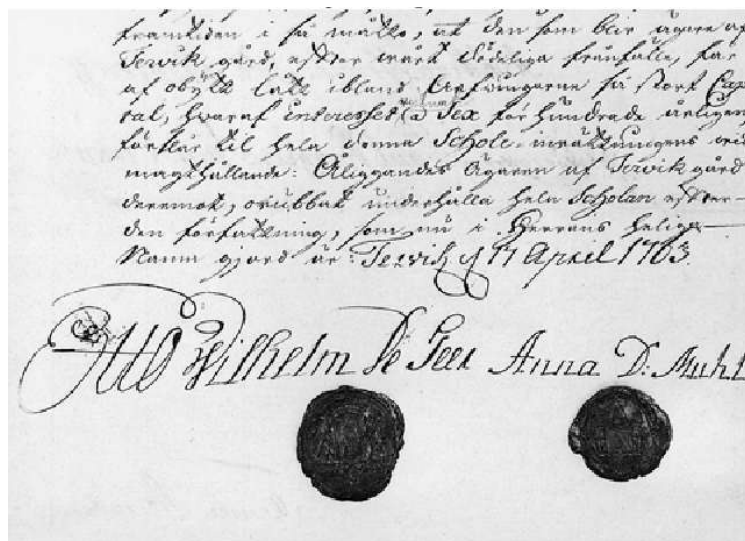 framtiden i så måtto, at den som blir ägare af
Terwik gård, efter wårt dödeliga frånfälle, får
af obytt lått ibland Arfwingarne så stort Cap
tal, hwaraf interesset a Sex för hundrade årligen
förslår til hela denna Schole-inrättningens
magthållande: Åliggandes Ägaren af Terwik gård
deremot, orubbat underhålla hela Scholan efter-
den författning, som nu i Herrans heliga
Namn gjord är: Terwik d 17 April 1763.
Otto Wilhelm De Geer Anna D: Muhl